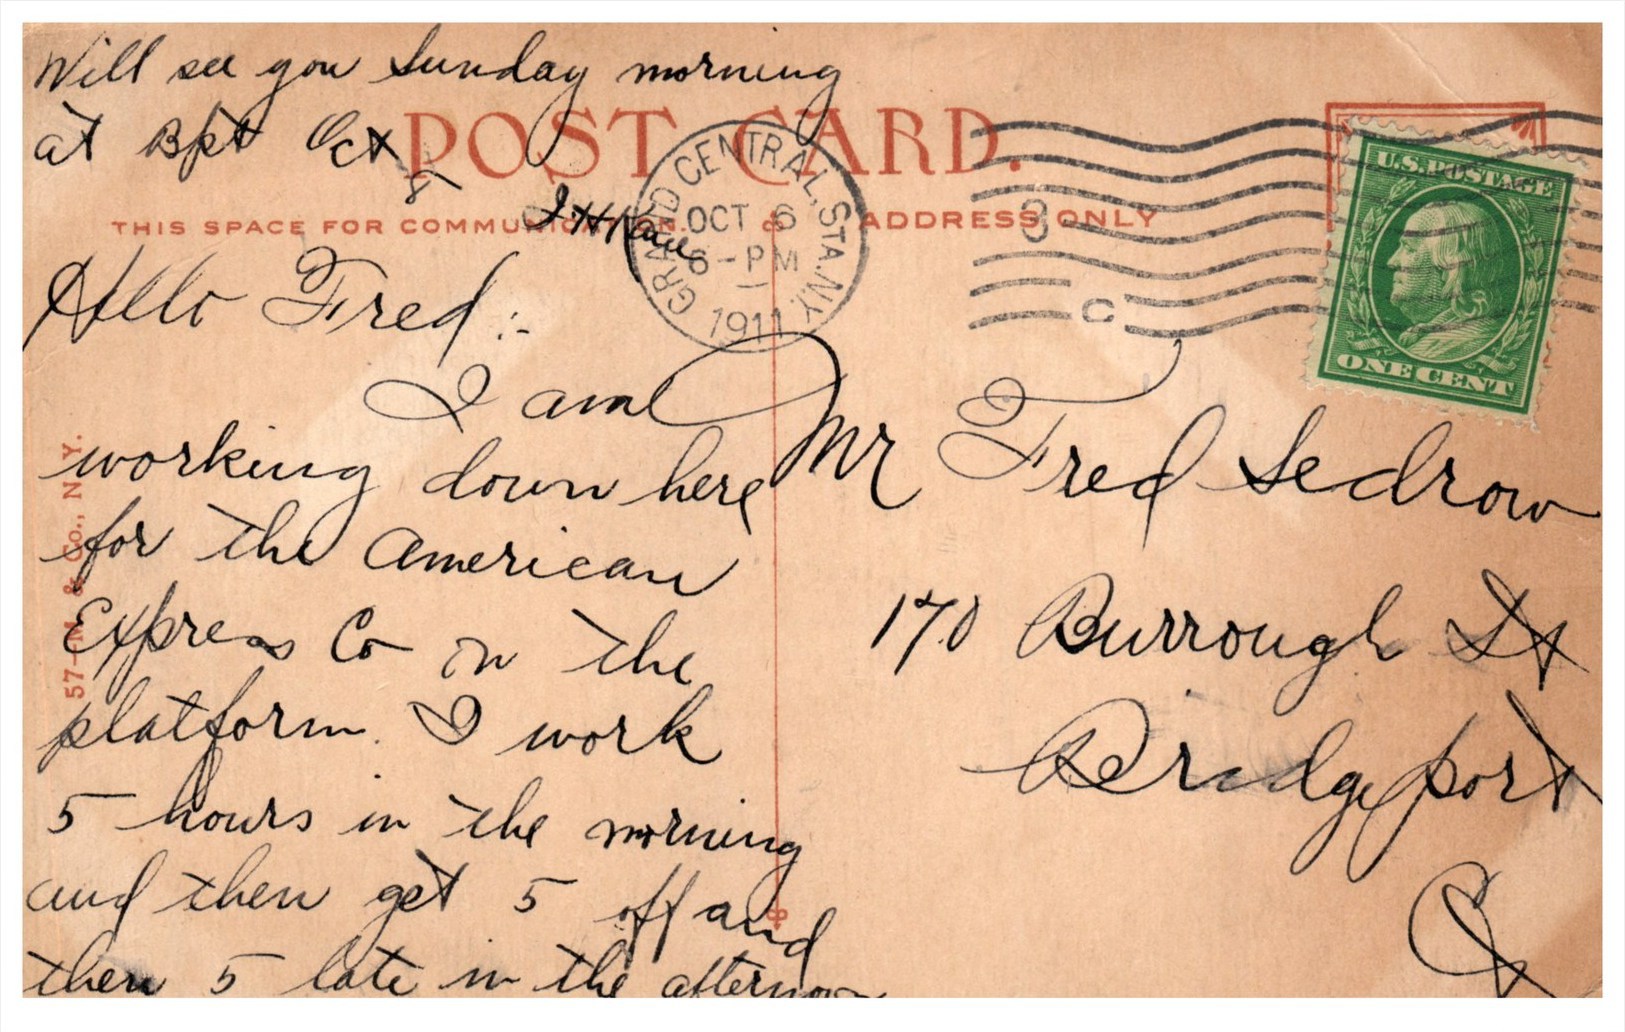 Will see you Sunday morning
at Bpt Oct
POST CARD.
THIS SPACE FOR COMMUNICATION.
& ADDRESS ONLY
GRAND CENTRAL STA. N.Y.
OCT 6
6 - PM
1911
3
C
U.S. POSTAGE
ONE CENT
Hello Fred :-
I am
working down here
for the American
Express Co on the
platform. I work
5 hours in the morning
and then get 5 off and
then 5 late in the afternoon
Mr Fred Sedrow
170 Burrough St
Bridgeport
Ct
57-M. & Co., N.Y.